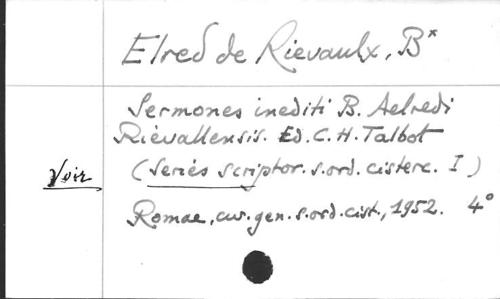 Elred de Rievaulx, B*
Sermones inediti B. Aelredi
Rievallensis. Ed. C. H. Talbot
Voir (Series scriptor. s. ord. cisterc. I)
Romae, cur. gen. s. ord. cist., 1952. 4°